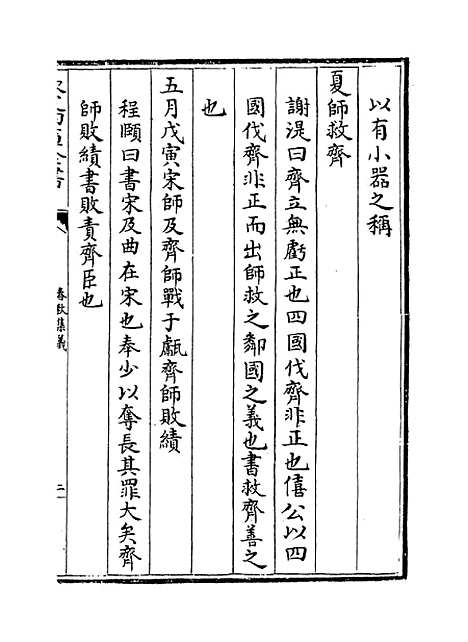 以有小器之稱
夏師救齊
謝湜曰齊立無虧正也四國伐齊非正也僖公以四
國伐齊非正而出師救之鄰國之義也書救齊善之
也
五月戊寅宋師及齊師戰于甗齊師敗績
程頤曰書宋及曲在宋也奉少以奪長其罪大矣齊
師敗績書敗責齊臣也
春秋集義